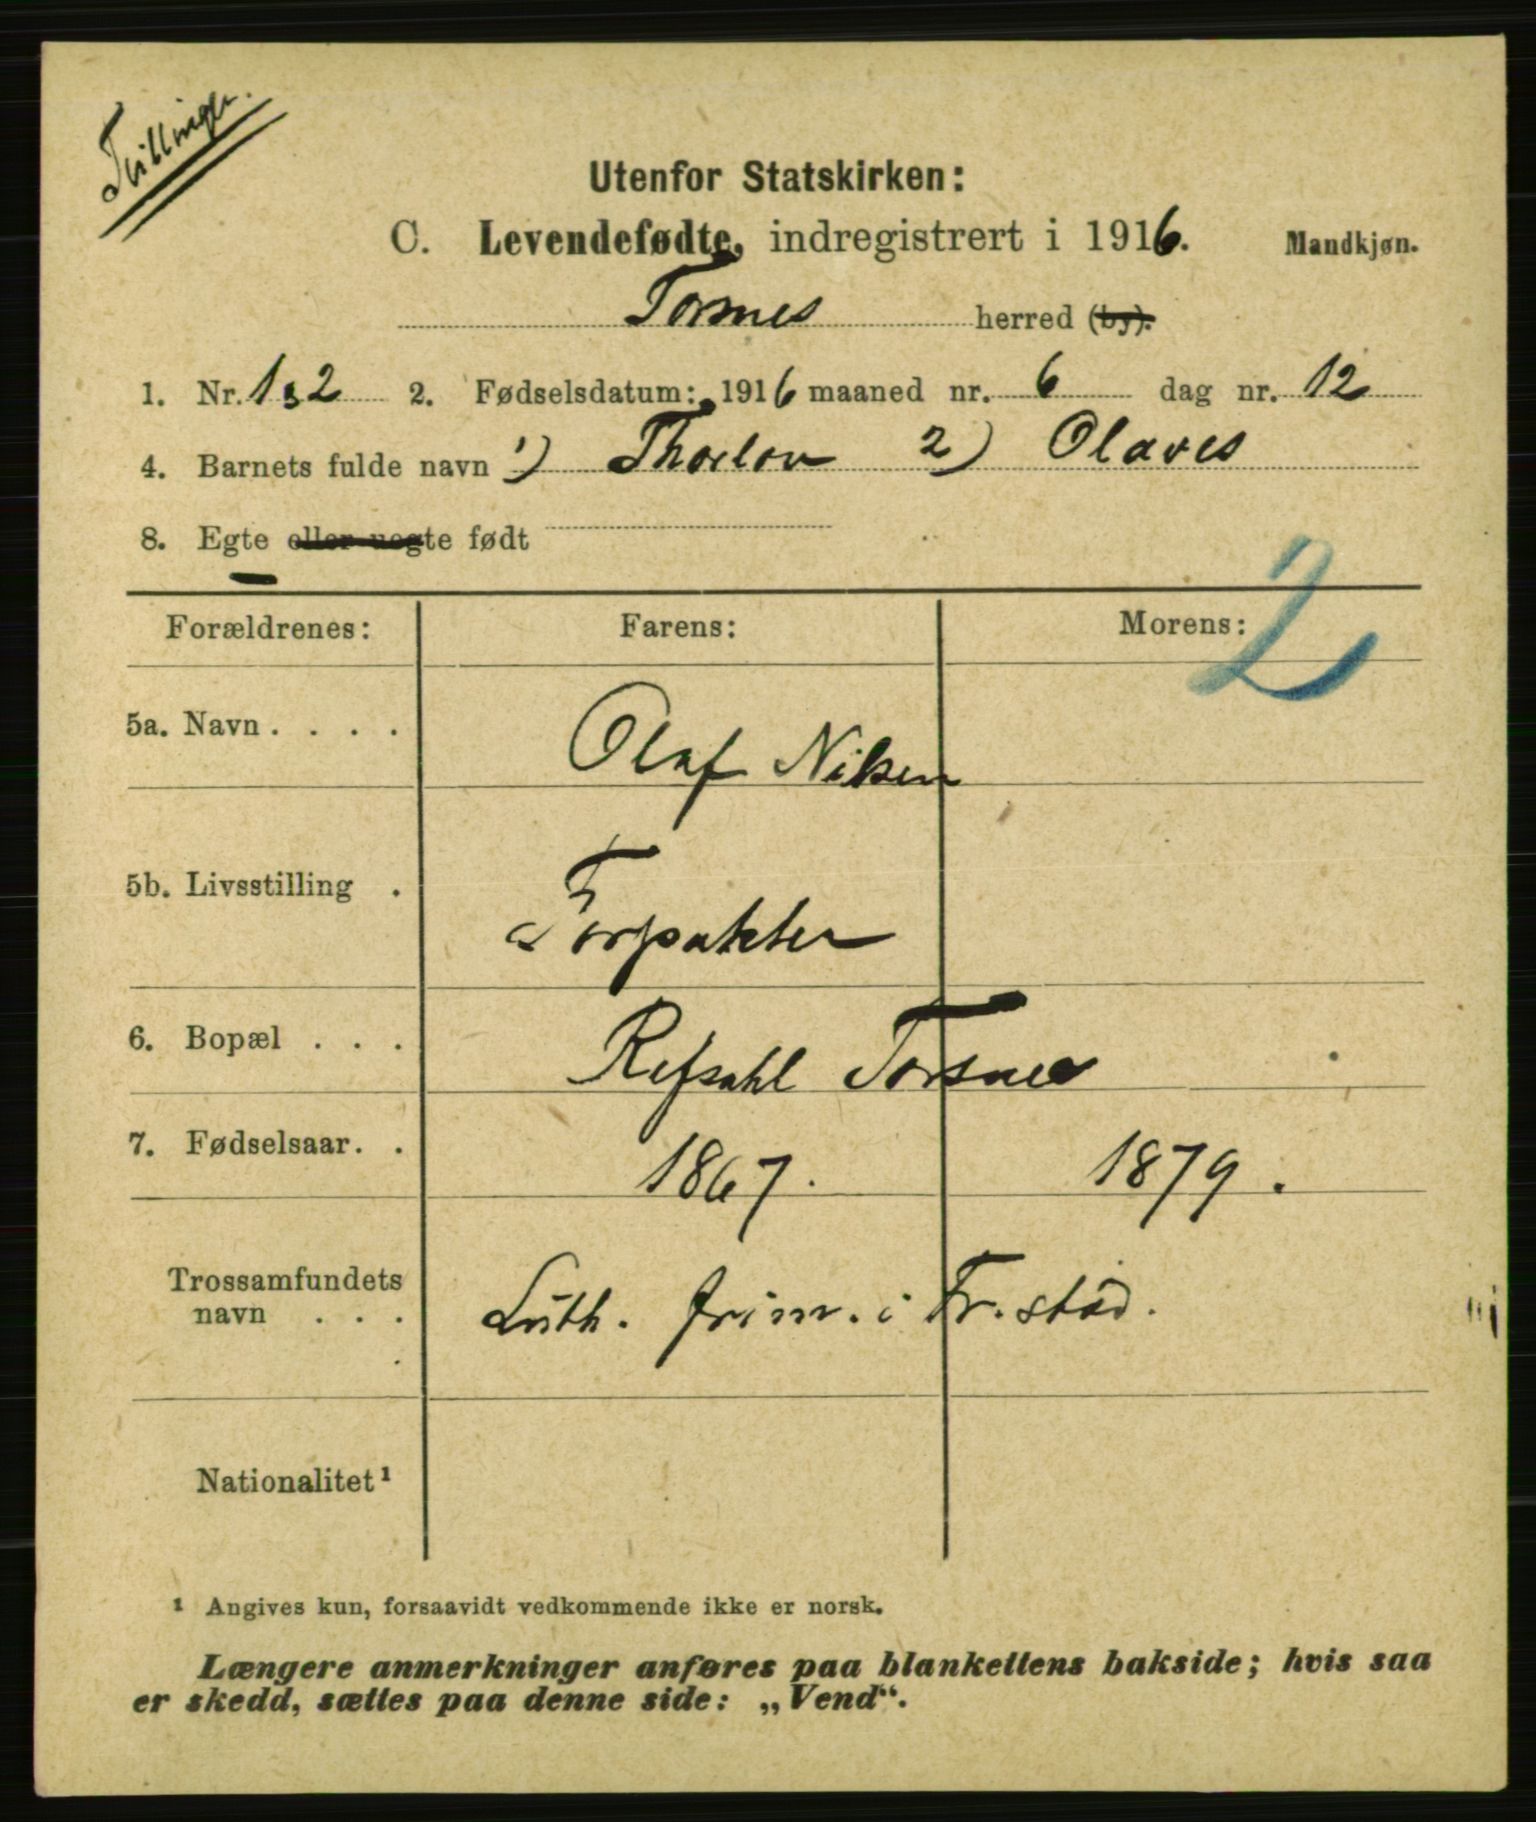 Tvillinger.
Utenfor Statskirken:
C. Levendefødte, indregistrert i 1916. Mandkjøn.
Torsnes herred (by).
1. Nr. 1, 2 2. Fødselsdatum: 1916 maaned nr. 6 dag nr. 12
4. Barnets fulde navn 1) Thorlov 2) Olaves
8. Egte eller uegte født
2
Forældrenes: Farens: Morens:
5a. Navn . . . . Olaf Nilsen
5b. Livsstilling . Forpakter
6. Bopæl . . . Refsahl Torsnes
7. Fødselsaar. . 1867. 1879.
Trossamfundets
navn . . . Luth. frim. i Fr.stad.
Nationalitet¹
¹ Angives kun, forsaavidt vedkommende ikke er norsk.
Længere anmerkninger anføres paa blankettens bakside; hvis saa
er skedd, sættes paa denne side: „Vend“.